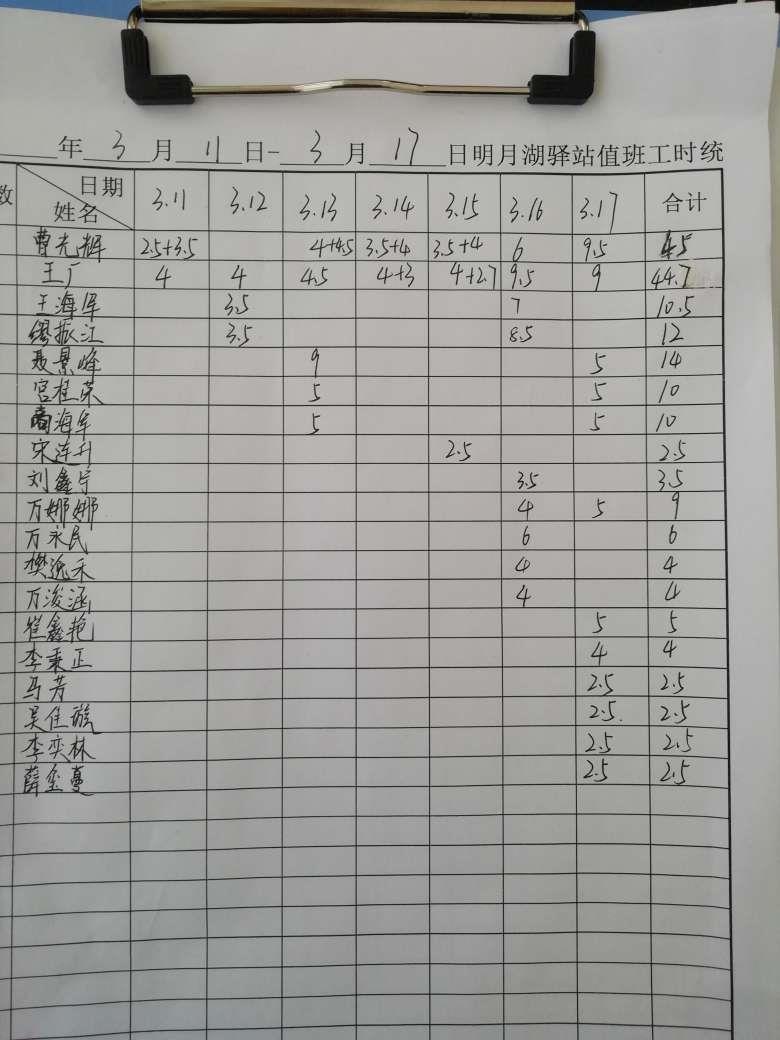 年 3 月 11 日-3 月 17 日明月湖驿站值班工时统
数 日期 姓名 3.11 3.12 3.13 3.14 3.15 3.16 3.17 合计
曹光辉 2.5+3.5 4+4.5 3.5+4 3.5+4 6 9.5 45
王广 4 4 4.5 4+3 4+2.7 9.5 9 44.7
王海军 3.5 7 10.5
缪振江 3.5 8.5 12
聂景峰 9 5 14
宫桂荣 5 5 10
商海军 5 5 10
宋连升 2.5 2.5
刘鑫宇 3.5 3.5
万娜娜 4 5 9
万永民 6 6
樊逸禾 4 4
万浚涵 4 4
崔鑫艳 5 5
李秉正 4 4
马芳 2.5 2.5
吴佳璇 2.5. 2.5
李奕林 2.5 2.5
薛玺蔓 2.5 2.5